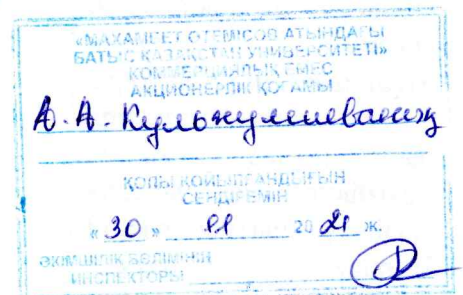 «МАХАМБЕТ ӨТЕМІСОВ АТЫНДАҒЫ
БАТЫС ҚАЗАҚСТАН УНИВЕРСИТЕТІ»
КОММЕРЦИЯЛЫҚ ЕМЕС
АКЦИОНЕРЛІК ҚОҒАМЫ
А. А. Кульжумиеваның
ҚОЛЫ ҚОЙЫЛҒАНДЫҒЫН
СЕНДІРЕМІН
« 30 » 11 20 21 ж.
ӘКІМШІЛІК БӨЛІМІНІҢ
ИНСПЕКТОРЫ